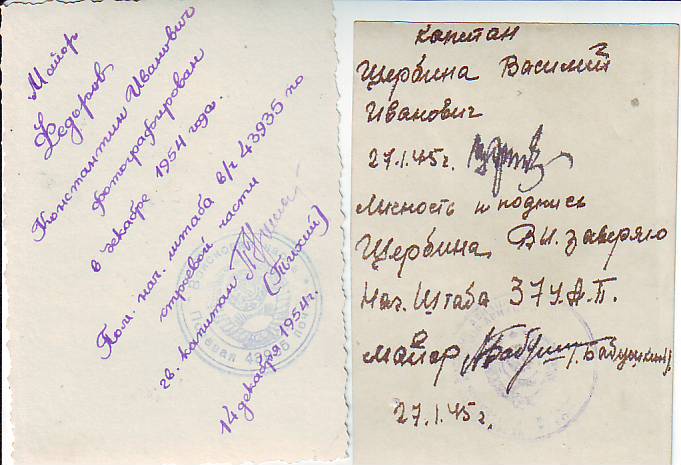 Майор
Федоров
Константин Иванович
фотографирован
в декабре 1954 года.
Пом. нач. штаба в/ч 43935 по
строевой части
гв. капитан (Тихий)
14 декабря 1954г.
Полевая почта 43935
капитан
Щербина Василий
Иванович
27.1.45г.
Личность и подпись
Щербина В.И. заверяю
Нач. Штаба 374 А.П.
Майор (Бабушкин)
27.1.45г.